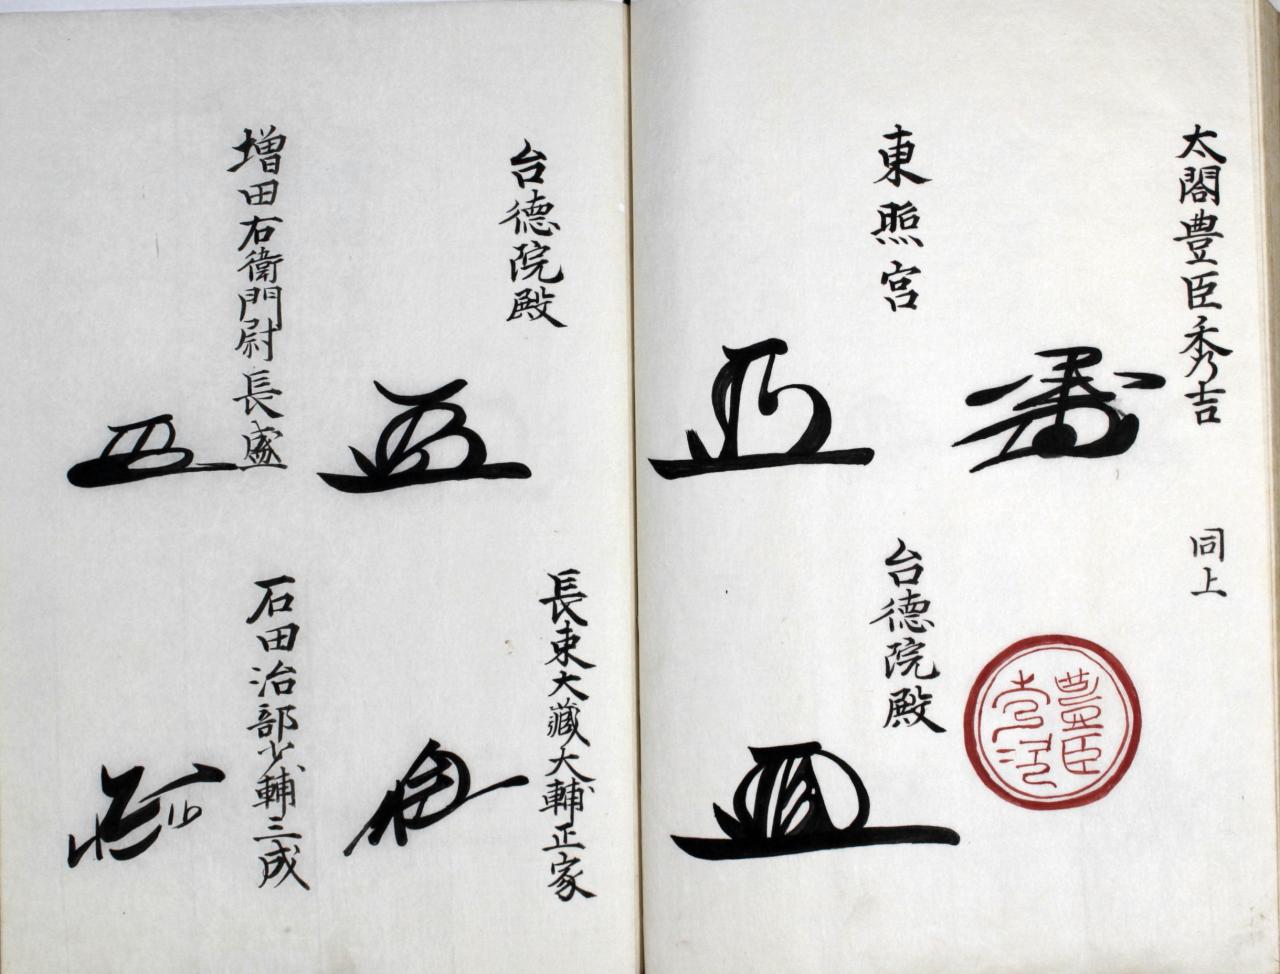 太閤豊臣秀吉
同上
豊臣
東照宮
台德院殿
台德院殿
長束大藏大輔正家
増田右衛門尉長盛
石田治部少輔三成